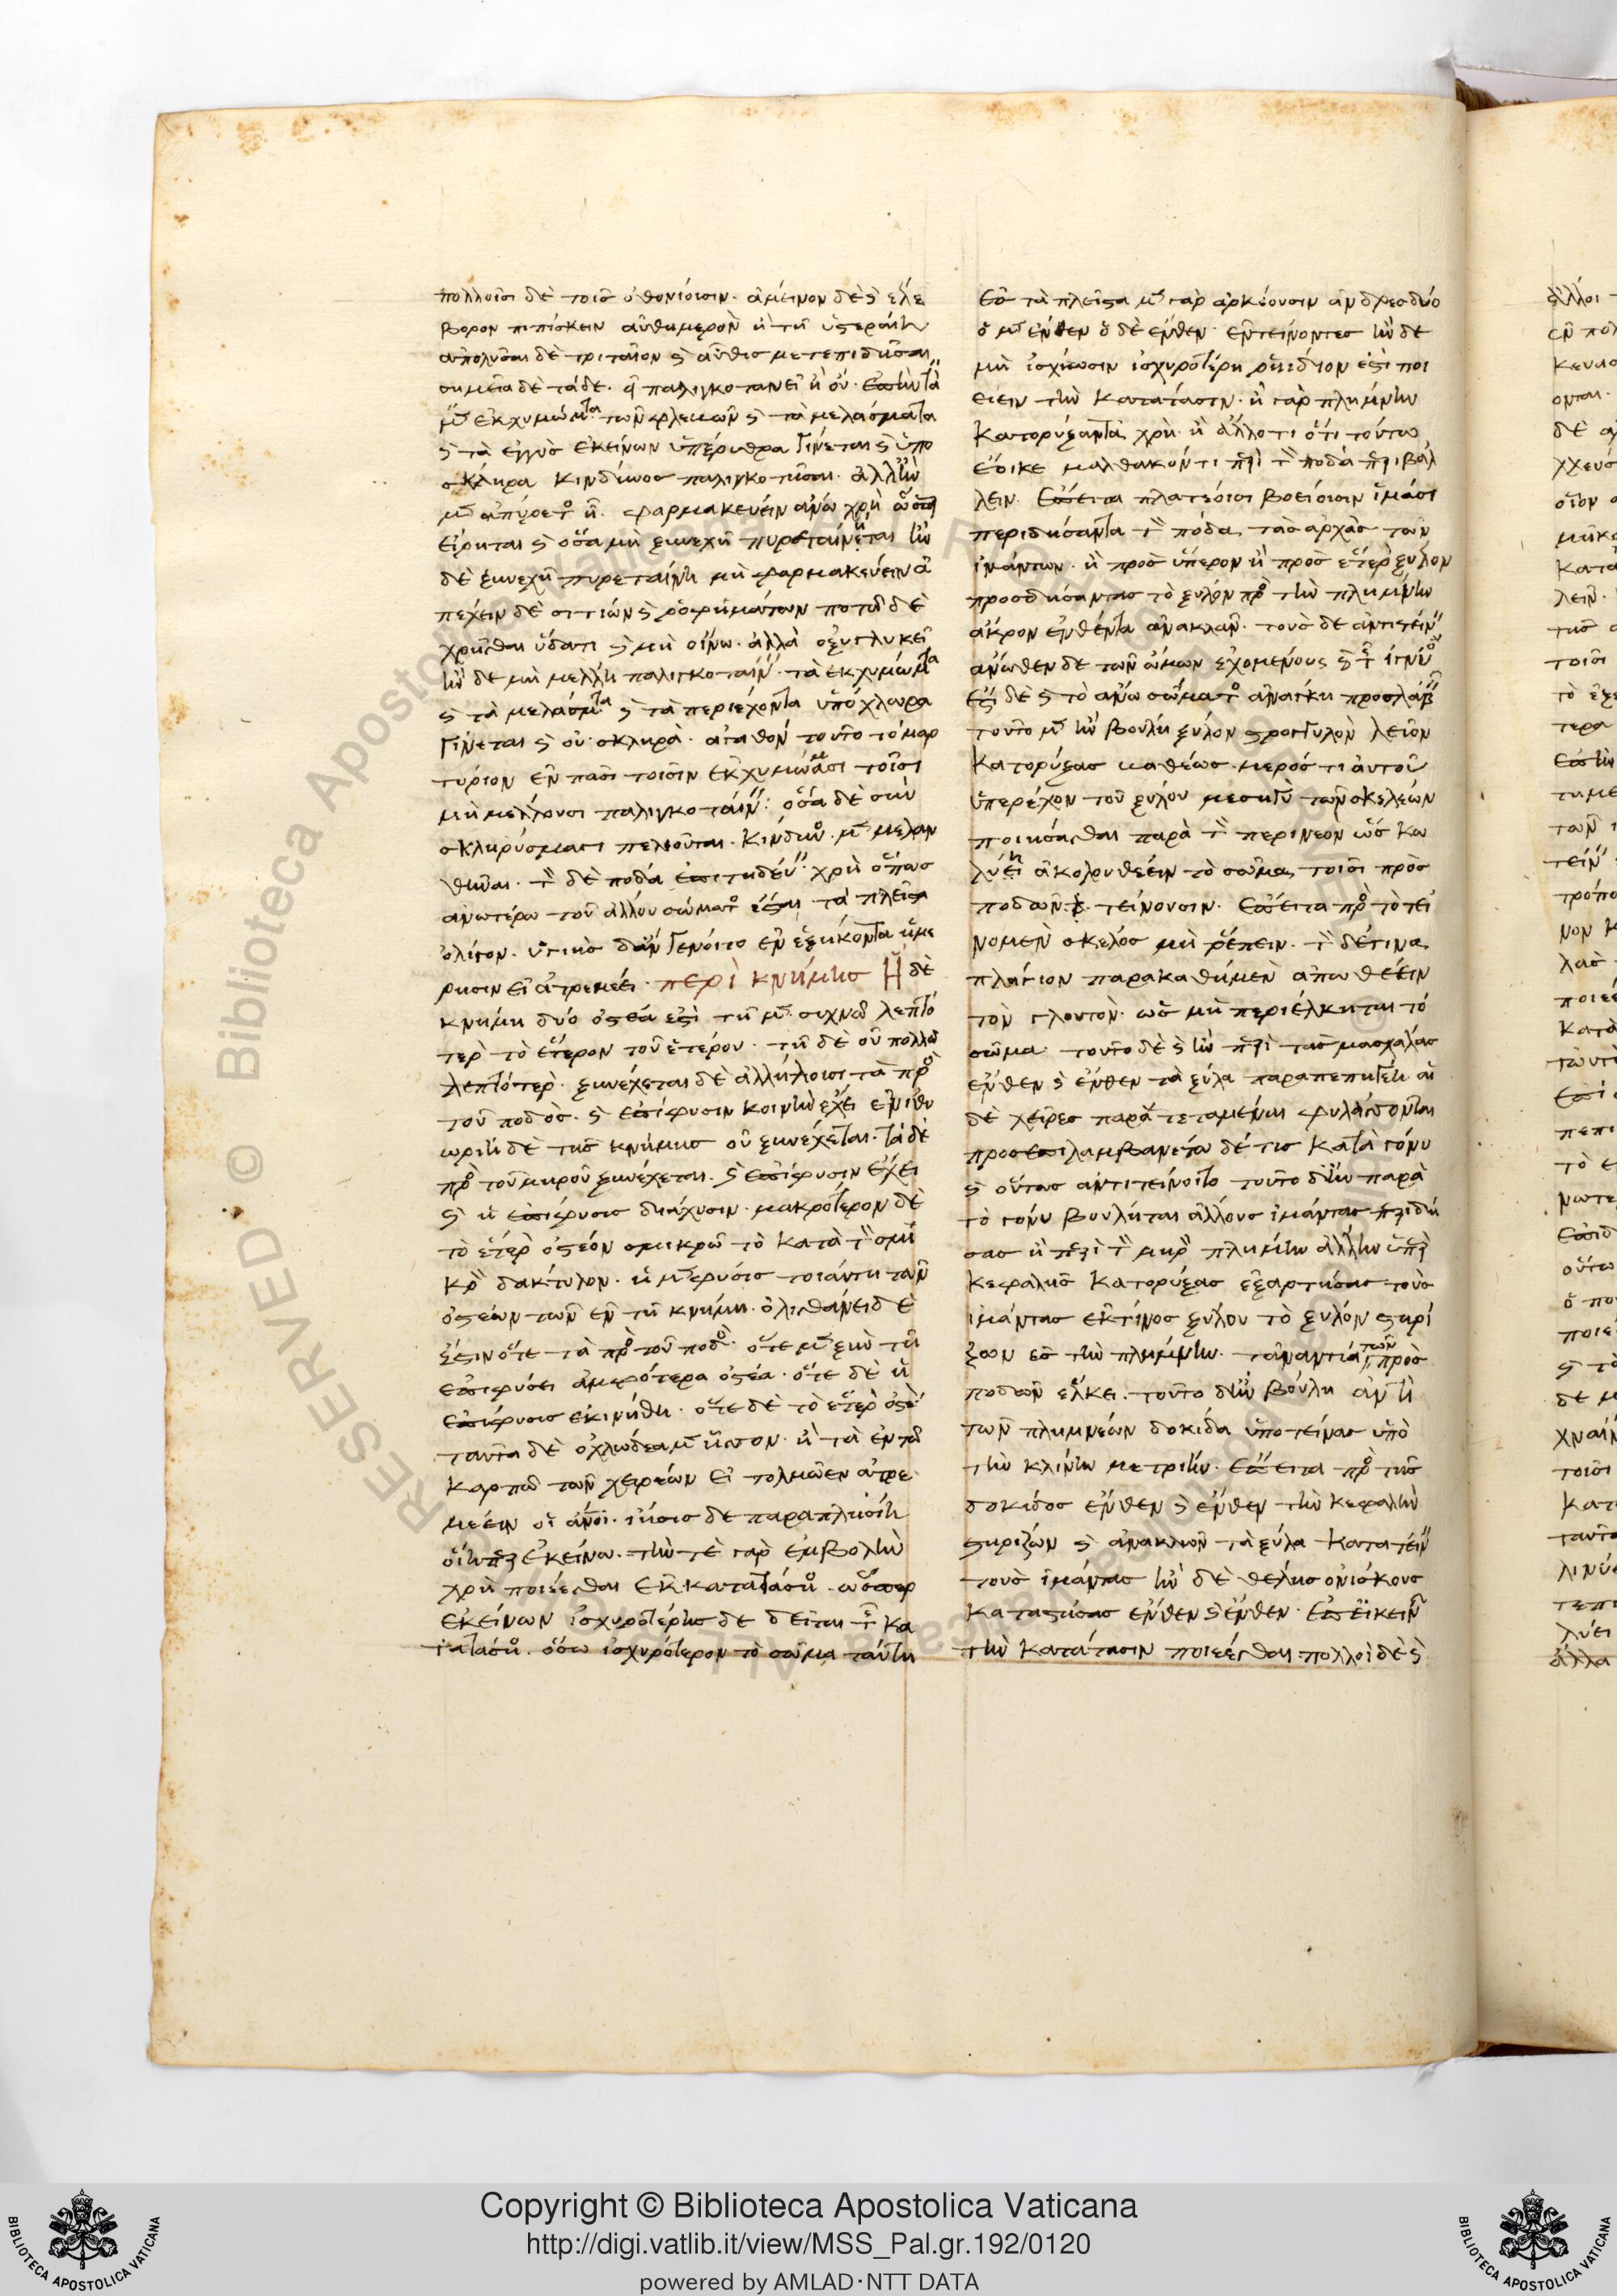 πολλοῖσι δὲ τοῖσ ὀθονίοισιν· ἄμεινον δὲ ϗ ἑλλέ
βορον πιπίσκειν αὐθημερὸν ἢ τῇ ὑστεραίη
ἀπολῦσαι δὲ τριταῖον ϗ αὖθισ μετεπιδῆσαι
σημεῖα δὲ τάδε· εἰ παλιγκοταίνει ἢ οὔ· ἐπὴν τὰ
μὲν ἐκχυμώματα τῶν φλεβῶν ϗ τὰ μελάσματα
ϗ τὰ ἐγγὺσ ἐκείνων ὑπέρυθρα γίνεται ϗ ὑπό
σκληρα κίνδυνοσ παλιγκοτῆσαι· ἀλλ' ἢν
μὲν ἀπύρετοσ ἦ· φαρμακεύειν ἄνω χρὴ ὥσπερ
εἴρηται ϗ ὅσα μὴ ξυνεχῆ πυρεταίνηται ἢν
δὲ ξυνεχῆ πυρεταίνη μὴ φαρμακεύειν ἀ
πέχειν δὲ σιτίων ϗ ῥοφημάτων ποτῶ δὲ
χρῆσθαι ὕδατι ϗ μὴ οἴνω· ἀλλὰ ὀξυγλυκεῖ
ἢν δὲ μὴ μέλλη παλιγκοταίνειν· τὰ ἐκχυμώματα
ϗ τὰ μελάσματα ϗ τὰ περιέχοντα ὑπόχλωρα
γίνεται ϗ οὐ σκληρὰ· ἀγαθόν τοῦτο τὸ μαρ
τύριον ἐν πᾶσι τοῖσιν ἐκχυμώμασι τοῖσι
μὴ μέλλουσι παλιγκοταίνειν: ὅσα δὲ σὺν
σκληρύσμασι πελιοῦται· κίνδυνοσ μὲν μελαν
θῆναι· τὸν δὲ πόδα ἐπιτηδεύειν χρὴ ὅπωσ
ἀνωτέρω τοῦ ἄλλου σώματοσ ἔσται τὰ πλεῖστα
ὀλίγον· ὑγιὴσ δ' ἂν γένοιτο ἐν ἑξήκοντα ἡμέ
ρησιν εἰ ἀτρεμέει· περὶ κνήμησ Ἡ δὲ
κνήμη δύο ὀστέα ἐστὶ τῇ μὲν συχνῶ λεπτό
τερον τὸ ἕτερον τοῦ ἑτέρου· τῇ δὲ οὐ πολλῶ
λεπτότερον· ξυνέχεται δὲ ἀλλήλοισι τὰ πρὸσ
τοῦ ποδὸσ· ϗ ἐπίφυσιν κοινὴν ἔχει ἐν ἰθυ
ωρίη δὲ τῆσ κνήμησ οὐ ξυνέχεται· τὰ δὲ
πρὸσ τοῦ μηροῦ ξυνέχεται· ϗ ἐπίφυσιν ἔχει
ϗ ἡ ἐπίφυσισ διάφυσιν· μακρότερον δὲ
τὸ ἕτερον ὀστέον σμικρῶ τὸ κατὰ τὸν σμι
κρὸν δάκτυλον· ἡ μὲν φύσισ τοιαύτη τῶν
ὀστέων τῶν ἐν τῇ κνήμη· ὀλισθάνει δὲ
ἔστιν ὅτε τὰ πρὸσ τοῦ ποδὸσ· ὅτε μὲν ξὺν τῇ
ἐπιφύσει ἀμφότερα ὀστέα· ὅτε δὲ ἡ
ἐπίφυσισ ἐκινήθη· ὅτε δὲ τὸ ἕτερον ὀστέον
ταῦτα δὲ ὀχλώδεα μὲν ἧττον· ἢ τὰ ἐν τῶ
καρπῶ τῶν χειρῶν εἰ τολμῶεν ἀτρε
μέειν οἱ ἄνοι· ἴησισ δὲ παραπλησίη
οἵη περ ἐκείνων· τήν τε γὰρ ἐμβολὴν
χρὴ ποιέεσθαι ἐκ κατατάσιοσ· ὥσπερ
ἐκείνων ἰσχυροτέρησ δὲ δεῖται τῆσ κα
τατάσιοσ· ὅσω ἰσχυρότερον τὸ σῶμα ταύτη
ἐσ τὰ πλεῖστα μὲν γὰρ ἀρκέουσιν ἄνδρεσ δύο
ὁ μὲν ἔνθεν ὁ δὲ ἔνθεν· ἐντείνοντεσ ἢν δὲ
μὴ ἰσχύωσιν ἰσχυροτέρη ῥηίδιόν ἐστι ποι
έειν τὴν κατάτασιν· ἢ γὰρ πλήμνην
κατορύξαντα χρὴ· ἢ ἄλλο τι ὅτι τούτω
ἔοικε μαλθακόν τι περὶ τὸν πόδα περιβαλ
λεῖν· ἔπειτα πλατέοισι βοείοισιν ἱμᾶσι
περιδήσαντα τὸν πόδα τὰσ ἀρχὰσ τῶν
ἱμάντων· ἢ πρὸσ ὕπερον ἢ πρὸσ ἕτερον ξύλον
προσδήσαντασ τὸ ξύλον πρὸσ τὴν πλήμνην
ἄκρον ἐνθέντα ἀνακλᾶν· τοὺσ δὲ ἀντιτείνειν
ἄνωθεν δὲ τῶν ὤμων ἐχομένουσ ϗ τῆσ ἰγνύησ
ἔστι δὲ ϗ τὸ ἄνω σώματοσ ἀνάγκη προσλαβεῖν
τοῦτο μὲν ἢν βούλη ξύλον στρογγύλον λεῖον
κατορύξασ βαθέωσ· μέροσ τι αὐτοῦ
ὑπερέχον τοῦ ξύλου μεσηγὺ τῶν σκελέων
ποιήσασθαι παρὰ τὸν περίνεον ὡσ κω
λύῃ ἀκολουθέειν τὸ σῶμα τοῖσι πρὸσ
ποδῶν τείνουσιν· ἔπειτα πρὸσ τὸ τει
νόμενον σκέλοσ μὴ ῥέπειν· τὸν δέ τινα
πλάγιον παρακαθήμενον ἀπωθέειν
τὸν γλουτὸν· ὡσ μὴ περιέλκηται τὸ
σῶμα· τοῦτο δὲ ϗ ἢν περὶ τὰσ μασχάλασ
ἔνθεν ϗ ἔνθεν τὰ ξύλα παραπεπήγη αἱ
δὲ χεῖρεσ παρατεταμέναι φυλάσσονται
προσεπιλαμβανέτω δέ τισ κατὰ γόνυ
ϗ οὕτωσ ἀντιτείνοιτο τοῦτο δ' ἢν παρὰ
τὸ γόνυ βούληται ἄλλουσ ἱμάντασ περιδή
σασ ἢ περὶ τὸν μηρὸν πλήμνην ἄλλην ὑπὲρ
κεφαλῆσ κατορύξασ ἐξαρτήσασ τοὺσ
ἱμάντασ ἔκ τινοσ ξύλου τὸ ξύλον στηρί
ζων ἐσ τὴν πλήμνην· τἀναντία τῶν πρὸσ
ποδῶν ἕλκει· τοῦτο δ' ἢν βούλη ἀντὶ
τῶν πλημνέων δοκίδα ὑποτείνασ ὑπὸ
τὴν κλίνην μετρίην· ἔπειτα πρὸσ τῆσ
δοκίδοσ ἔνθεν ϗ ἔνθεν τὴν κεφαλὴν
στηρίζων ϗ ἀνακλῶν τὰ ξύλα κατατείνειν
τοὺσ ἱμάντασ ἢν δὲ θέλησ ὀνίσκουσ
καταστήσασ ἔνθεν ϗ ἔνθεν· ἐπ' ἐκείνων
τὴν κατάτασιν ποιέεσθαι· πολλοὶ δὲ ϗ
Copyright © Biblioteca Apostolica Vaticana
http://digi.vatlib.it/view/MSS_Pal.gr.192/0120
powered by AMLAD·NTT DATA
BIBLIOTECA APOSTOLICA VATICANA
BIBLIOTECA APOSTOLICA VATICANA